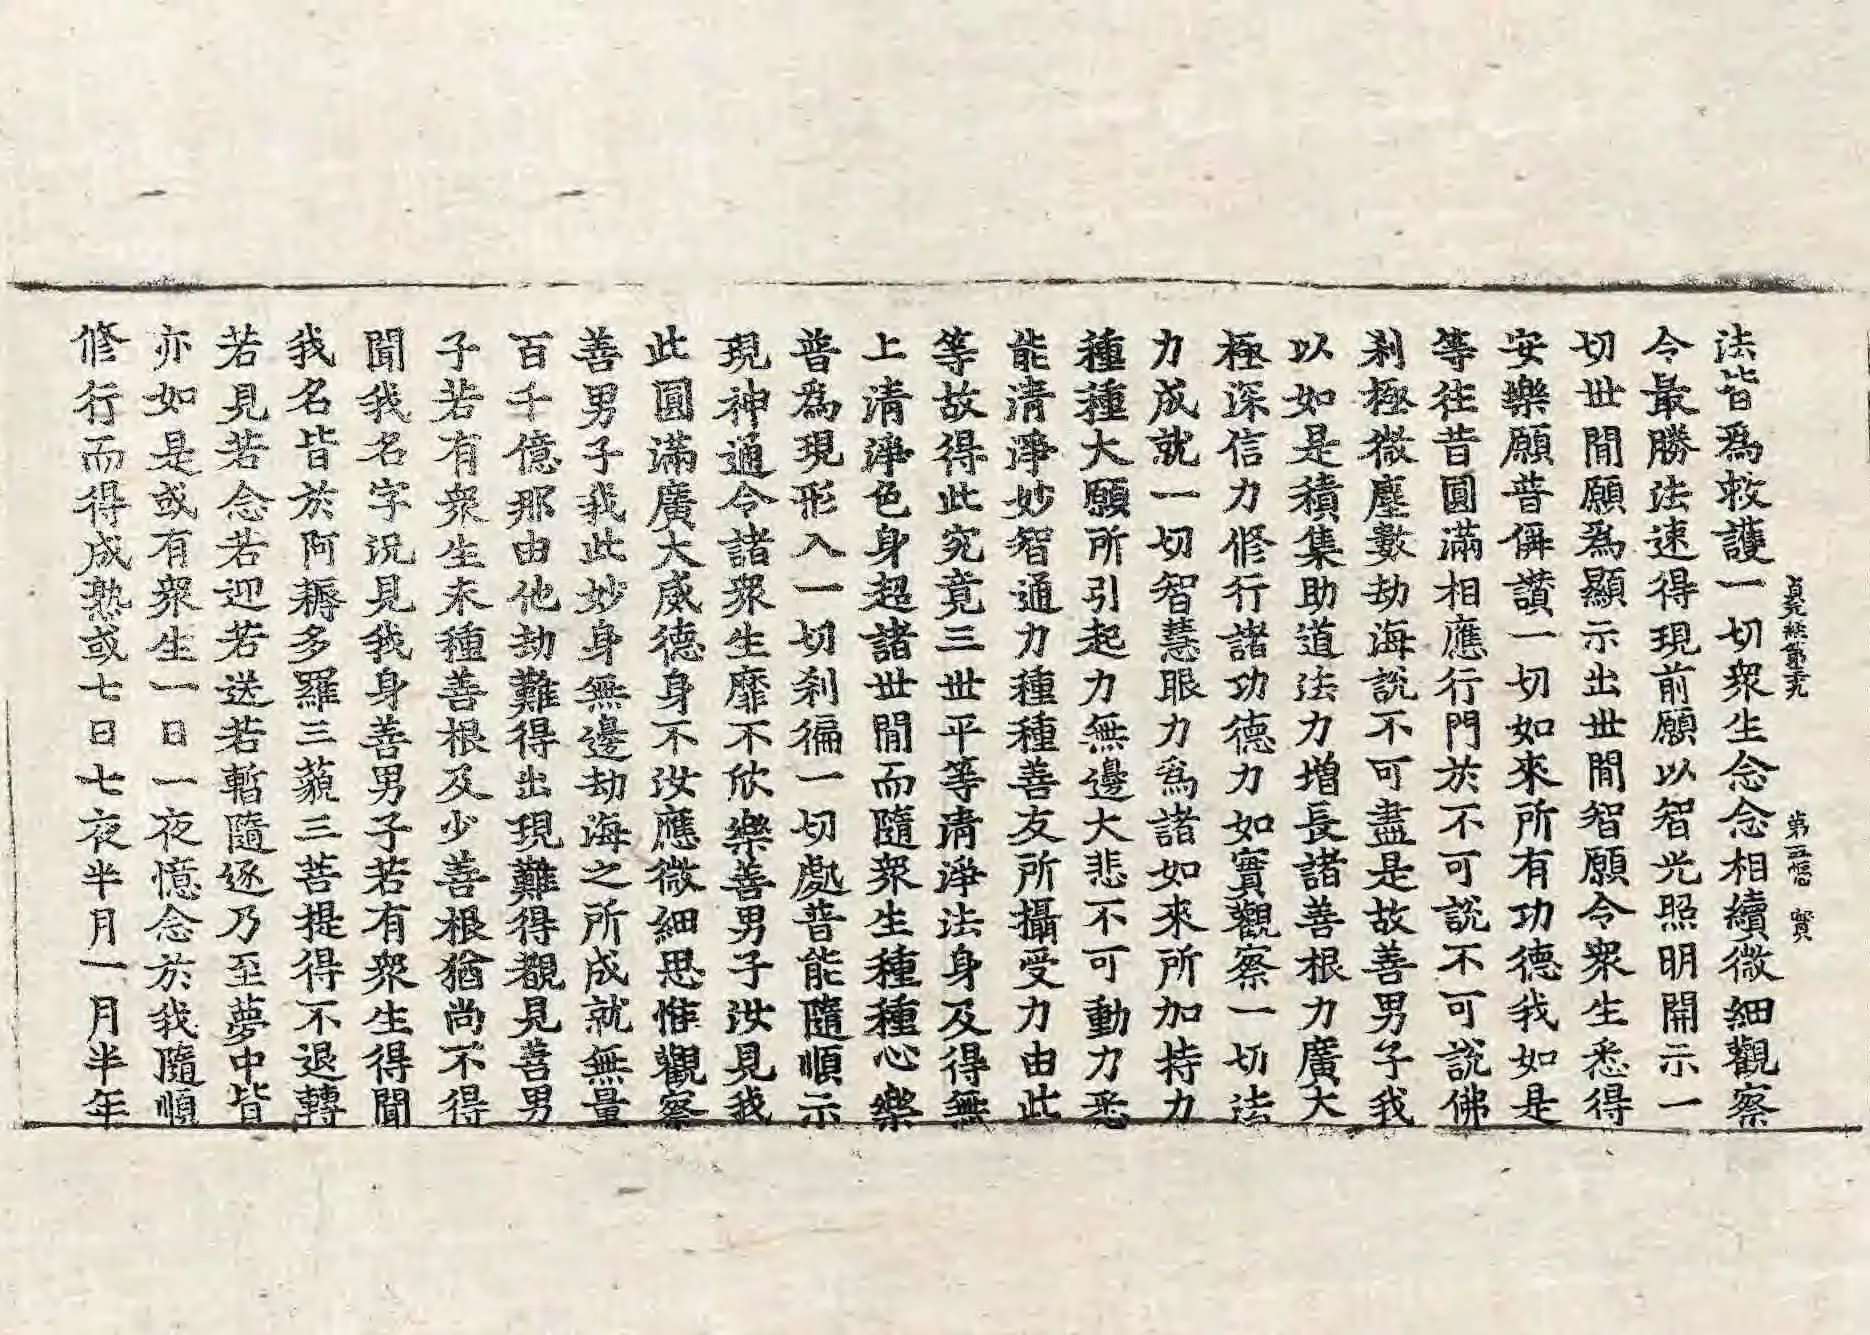 法皆爲救護一切衆生念念相續微細觀察
貞元經第三十九 第五張 賢
令最勝法速得現前願以智光照明開示一
切世間願爲顯示出世間智願令衆生悉得
安樂願普偁讃一切如來所有功德我如是
等往昔圓滿相應行門於不可說不可說佛
刹極微塵數劫海說不可盡是故善男子我
以如是積集助道法力增長諸善根力廣大
極深信力修行諸功德力如實觀察一切法
力成就一切智慧眼力爲諸如來所加持力
種種大願所引起力無邊大悲不可動力悉
能清淨妙智通力種種善友所攝受力由此
等故得此究竟三世平等清淨法身及得無
上清淨色身超諸世間而隨衆生種種心樂
普爲現形入一切刹徧一切處普能隨順示
現神通令諸衆生靡不欣樂善男子汝見我
此圓滿廣大威德身不汝應微細思惟觀察
善男子我此妙身無邊劫海之所成就無量
百千億那由他劫難得出現難得覩見善男
子若有衆生未種善根及少善根猶尚不得
聞我名字況見我身善男子若有衆生得聞
我名皆於阿耨多羅三藐三菩提得不退轉
若見若念若迎若送若暫隨逐乃至夢中皆
亦如是或有衆生一日一夜憶念於我隨順
修行而得成熟或七日七夜半月一月半年